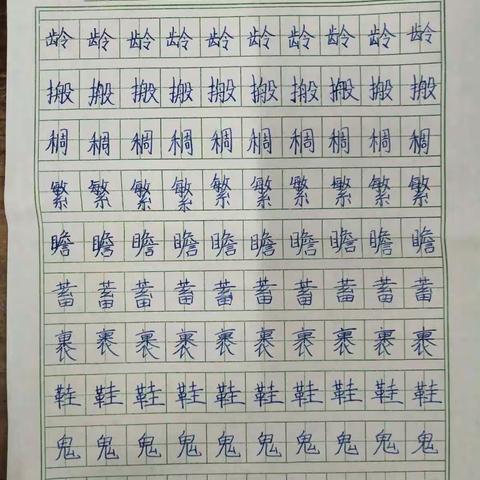 龄龄龄龄龄龄龄龄龄龄
搬搬搬搬搬搬搬搬搬搬
稠稠稠稠稠稠稠稠稠稠
繁繁繁繁繁繁繁繁繁繁
瞻瞻瞻瞻瞻瞻瞻瞻瞻瞻
蓄蓄蓄蓄蓄蓄蓄蓄蓄蓄
裹裹裹裹裹裹裹裹裹裹
鞋鞋鞋鞋鞋鞋鞋鞋鞋鞋
鬼鬼鬼鬼鬼鬼鬼鬼鬼鬼